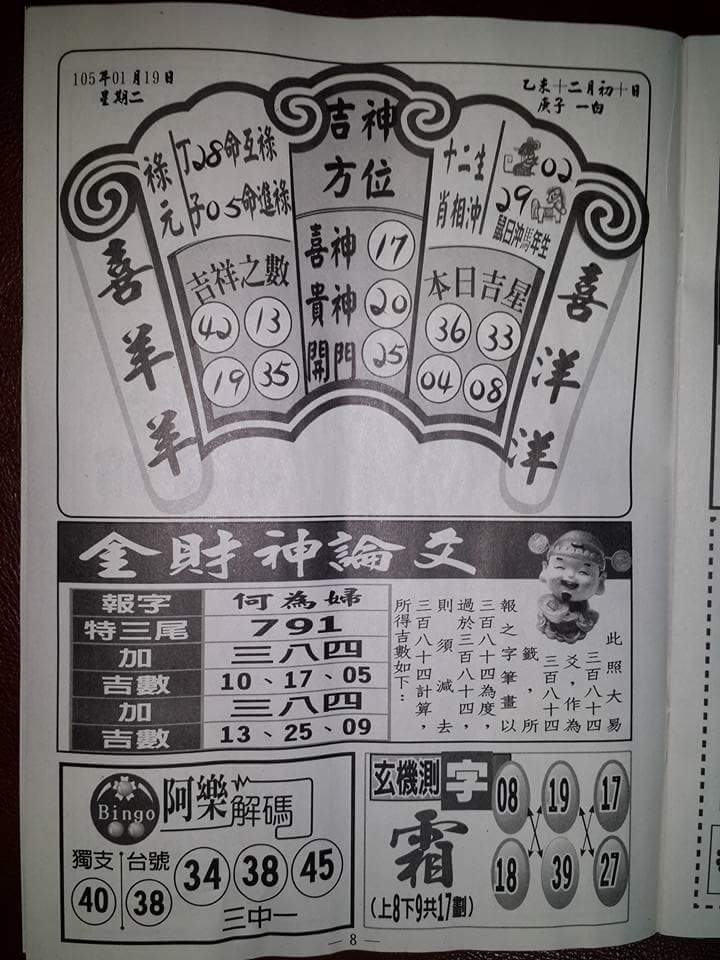 105年01月19日
星期二
乙未十二月初十日
庚子 一白
喜羊羊
祿元
丁28命互祿
子05命進祿
吉祥之數
42 13
19 35
吉神
方位
喜神 17
貴神 20
開門 25
十二生
肖相沖
02
29
鼠日沖馬年生
本日吉星
36 33
04 08
喜洋洋
金財神論爻
報字 何為婦
特三尾 791
加 三八四
吉數 10、17、05
加 三八四
吉數 13、25、09
此照大易
三百八十四
爻，作為
三百八十四
籤，所
報之字筆畫以
三百八十四為度，
過於三百八十四，
則須減去
三百八十四計算，
所得吉數如下：
Bingo 阿樂解碼
獨支 40
台號 38
34 38 45
三中一
玄機測字
霜
(上8下9共17劃)
08 19 17
18 39 27
— 8 —